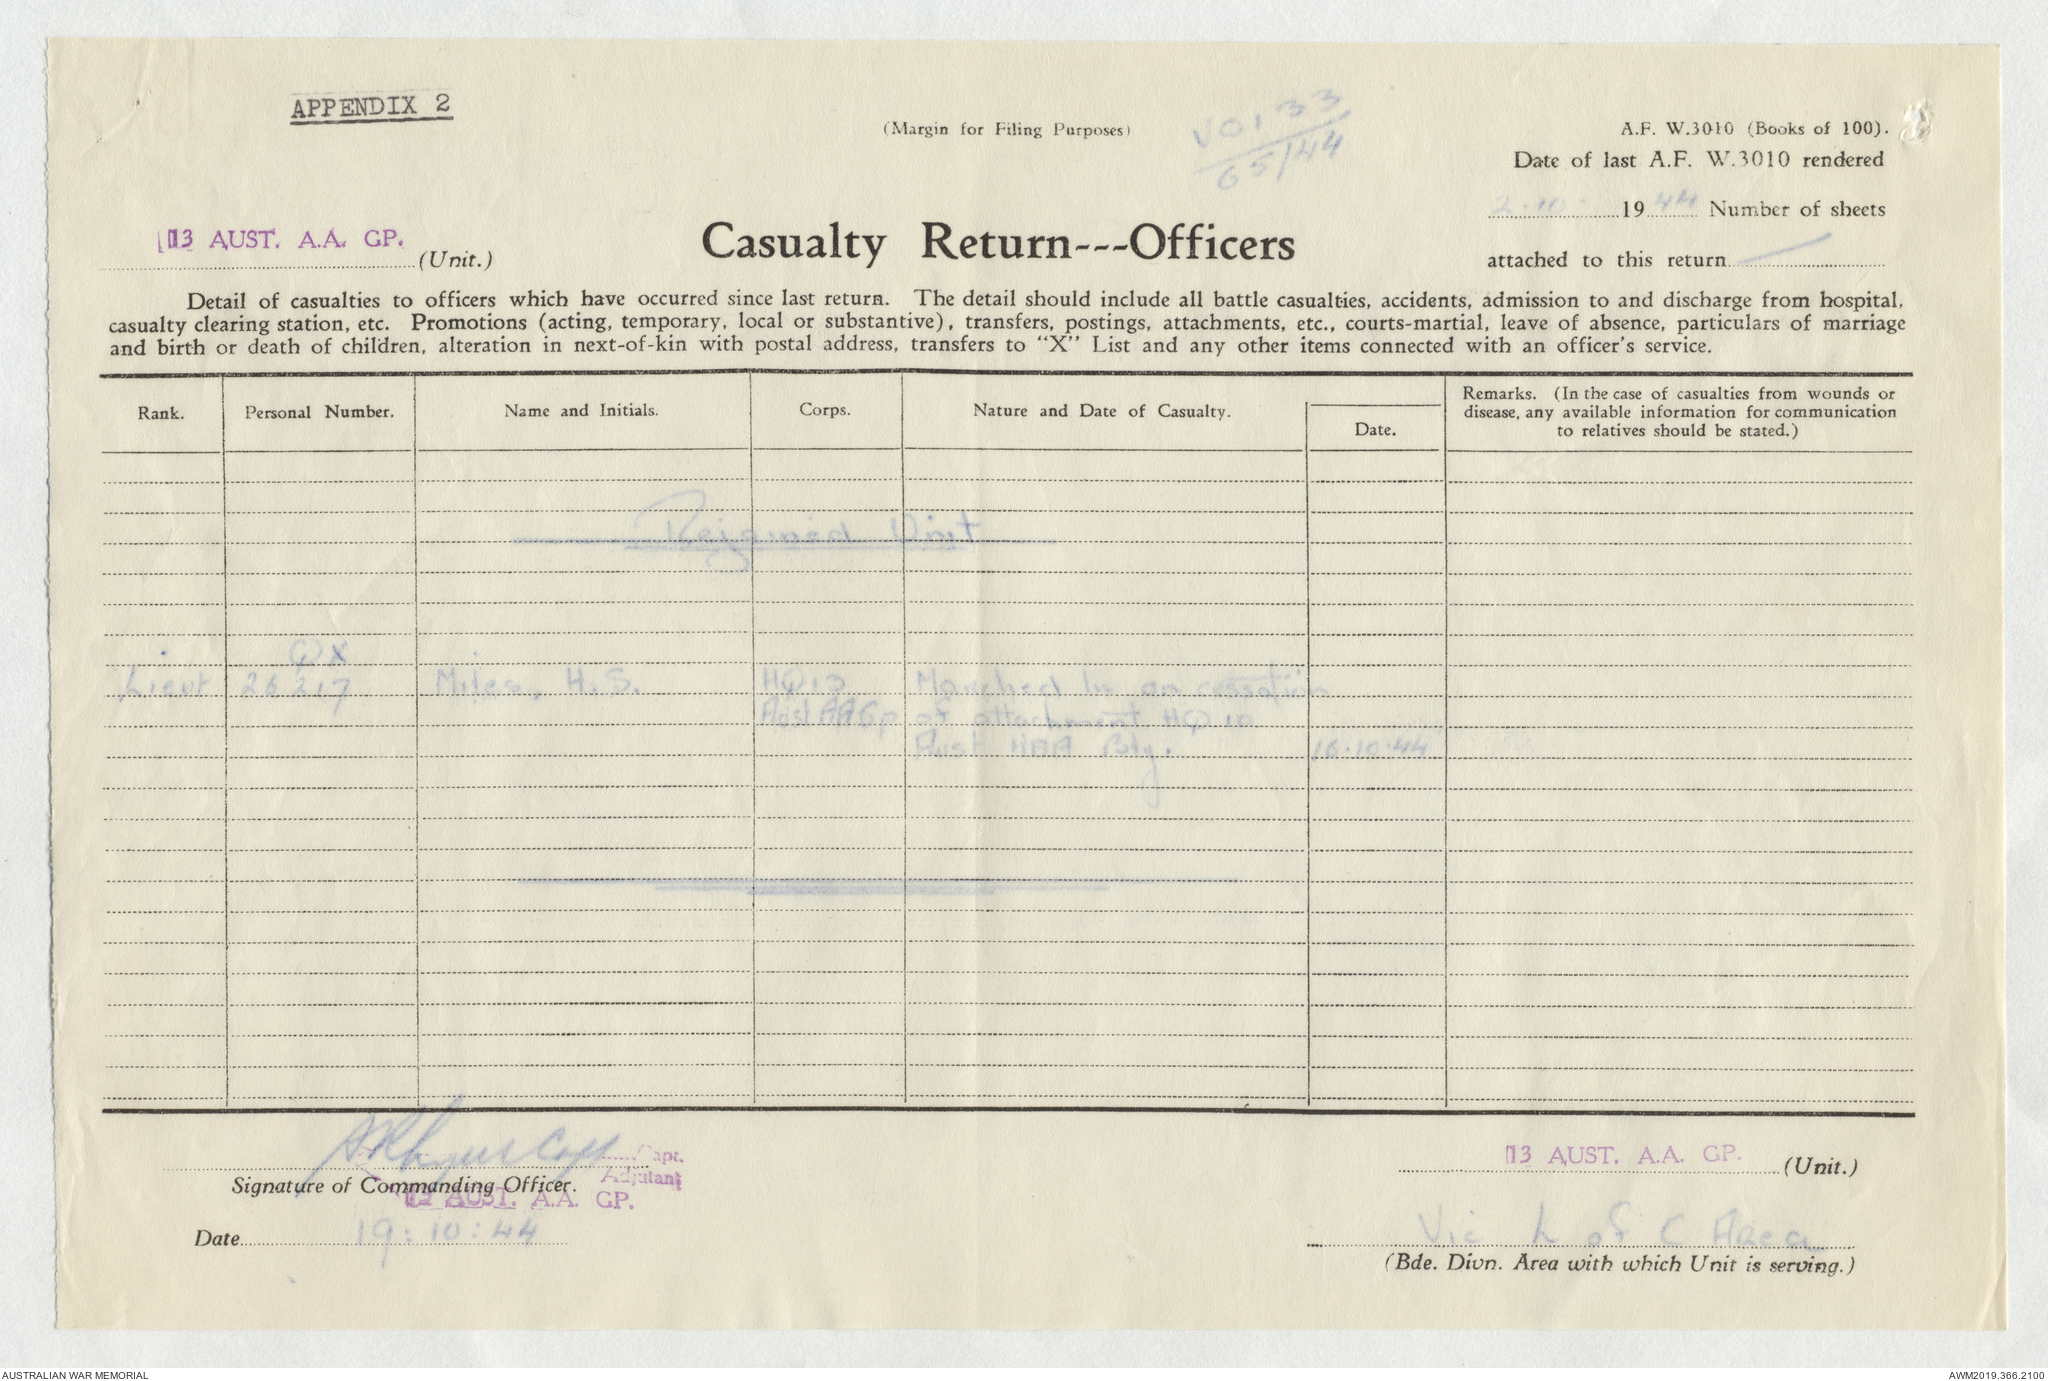 APPENDIX 2
(Margin for Filing Purposes)
VO133
65/44
A.F. W.3010 (Books of 100).
Date of last A.F. W.3010 rendered
2.10. 1944 Number of sheets
attached to this return
13 AUST. A.A. GP.
(Unit.)
Casualty Return---Officers
Detail of casualties to officers which have occurred since last return. The detail should include all battle casualties, accidents, admission to and discharge from hospital,
casualty clearing station, etc. Promotions (acting, temporary, local or substantive), transfers, postings, attachments, etc., courts-martial, leave of absence, particulars of marriage
and birth or death of children, alteration in next-of-kin with postal address, transfers to "X" List and any other items connected with an officer's service.
Rank. Personal Number. Name and Initials. Corps. Nature and Date of Casualty. Date. Remarks. (In the case of casualties from wounds or
disease, any available information for communication
to relatives should be stated.)
Rejoined Unit
QX
Lieut 26217 Miles, H.S. HQ 13 Marched In on cessation
Aust AA Gp of attachment HQ 10
Aust HAA Bty. 16.10.44
Capt.
Adjutant
Signature of Commanding Officer.
13 AUST. A.A. GP.
Date 19:10:44
13 AUST. A.A. GP. (Unit.)
Vic L of C Area
(Bde. Divn. Area with which Unit is serving.)
AUSTRALIAN WAR MEMORIAL
AWM2019.366.2100